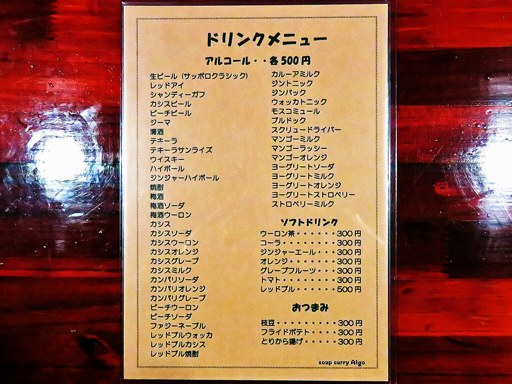 ドリンクメニュー
アルコール・・各500円
生ビール（サッポロクラシック）
レッドアイ
シャンディーガフ
カシスビール
ピーチビール
ジーマ
清酒
テキーラ
テキーラサンライズ
ウイスキー
ハイボール
ジンジャーハイボール
焼酎
梅酒
梅酒ソーダ
梅酒ウーロン
カシス
カシスソーダ
カシスウーロン
カシスオレンジ
カシスグレープ
カシスミルク
カンパリソーダ
カンパリオレンジ
カンパリグレープ
ピーチウーロン
ピーチソーダ
ファジーネーブル
レッドブルウォッカ
レッドブルカシス
レッドブル焼酎
カルーアミルク
ジントニック
ジンバック
ウォッカトニック
モスコミュール
ブルドック
スクリュードライバー
マンゴーミルク
マンゴーラッシー
マンゴーオレンジ
ヨーグリートソーダ
ヨーグリートミルク
ヨーグリートオレンジ
ヨーグリートストロベリー
ストロベリーミルク
ソフトドリンク
ウーロン茶・・・・・・・300円
コーラ・・・・・・・・・300円
ジンジャーエール・・・・300円
オレンジ・・・・・・・・300円
グレープフルーツ・・・300円
トマト・・・・・・・・・300円
レッドブル・・・・・・・500円
おつまみ
枝豆・・・・・・・・・300円
フライドポテト・・・・300円
とりから揚げ・・・・・300円
soup curry Algo